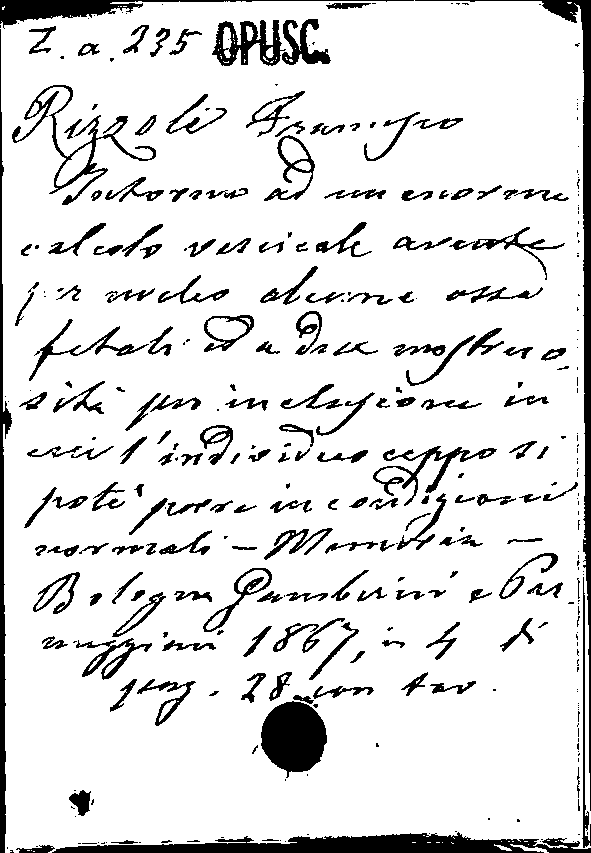 Z. a. 235 OPUSC.
Rizzoli Francesco
Intorno ad un enorme
calcolo vescicale avente
per nucleo alcune ossa
fetali ed a due mostruo-
sità per inclusione in
cui l'individuo ceppo si
potè porre in condizioni
normali - Memoria -
Bologna Gamberini e Par-
meggiani 1867, in 4 di
pag. 28 con tav.